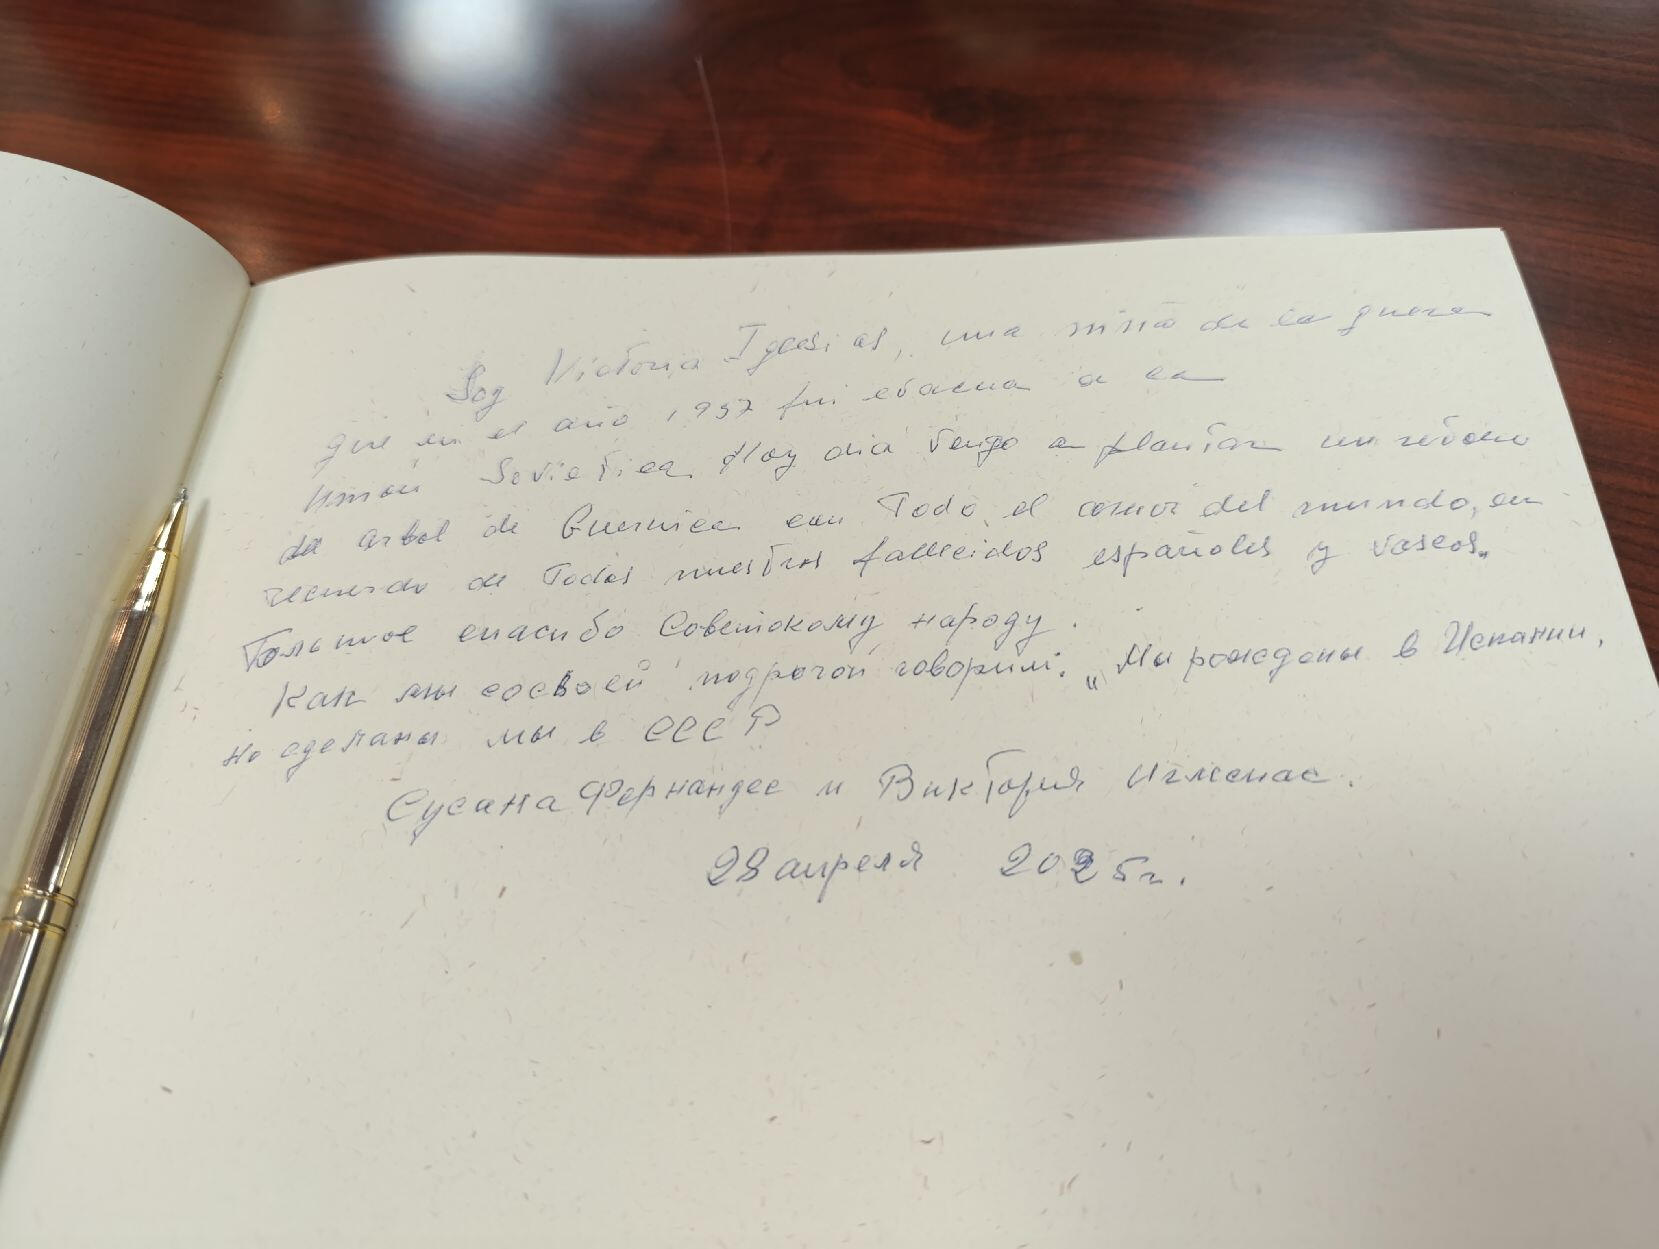 Soy Victoria Iglesias, una niña de la guerra
que en el año 1937 fui evacua a la
Unión Sovietica. Hoy dia vengo a plantar un retoño
del arbol de Guernica con todo el amor del mundo, en
recuerdo de todos nuestros fallecidos españoles y vascos.
Большое спасибо Советскому народу.
Как мы со своей подругой говорим: „Мы рождены в Испании,
но сделаны мы в СССР
Сусана Фернандес и Виктория Иглесиас.
28 апреля 2025г.